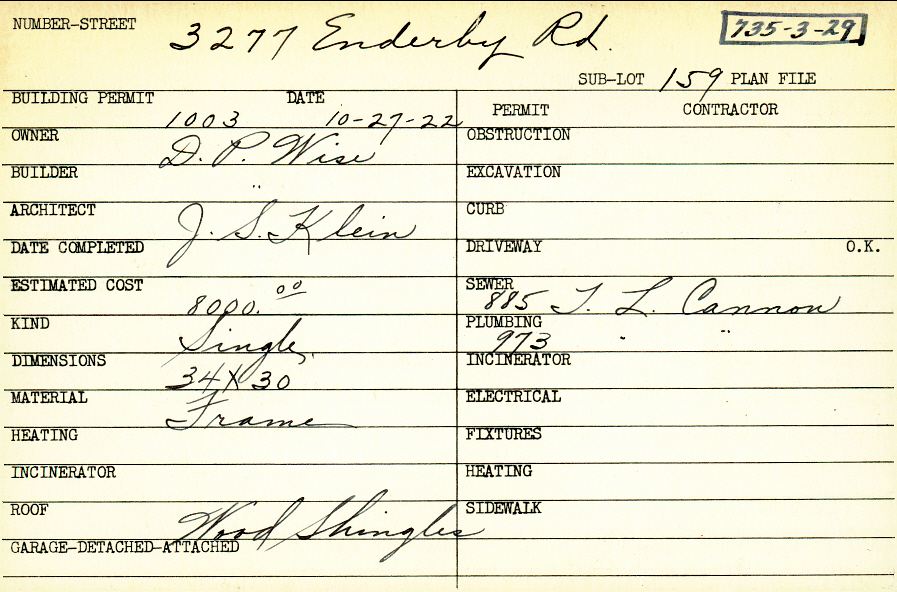 NUMBER-STREET 3277 Enderby Rd. 735-3-29
SUB-LOT 159 PLAN FILE
BUILDING PERMIT 1003 DATE 10-27-22
OWNER D. P. Wise
BUILDER "
ARCHITECT J. S. Klein
DATE COMPLETED
ESTIMATED COST 8000.00
KIND Single
DIMENSIONS 34 X 30
MATERIAL Frame
HEATING
INCINERATOR
ROOF Wood Shingles
GARAGE-DETACHED-ATTACHED
PERMIT CONTRACTOR
OBSTRUCTION
EXCAVATION
CURB
DRIVEWAY O.K.
SEWER 885 T. L. Cannon
PLUMBING 973 " "
INCINERATOR
ELECTRICAL
FIXTURES
HEATING
SIDEWALK